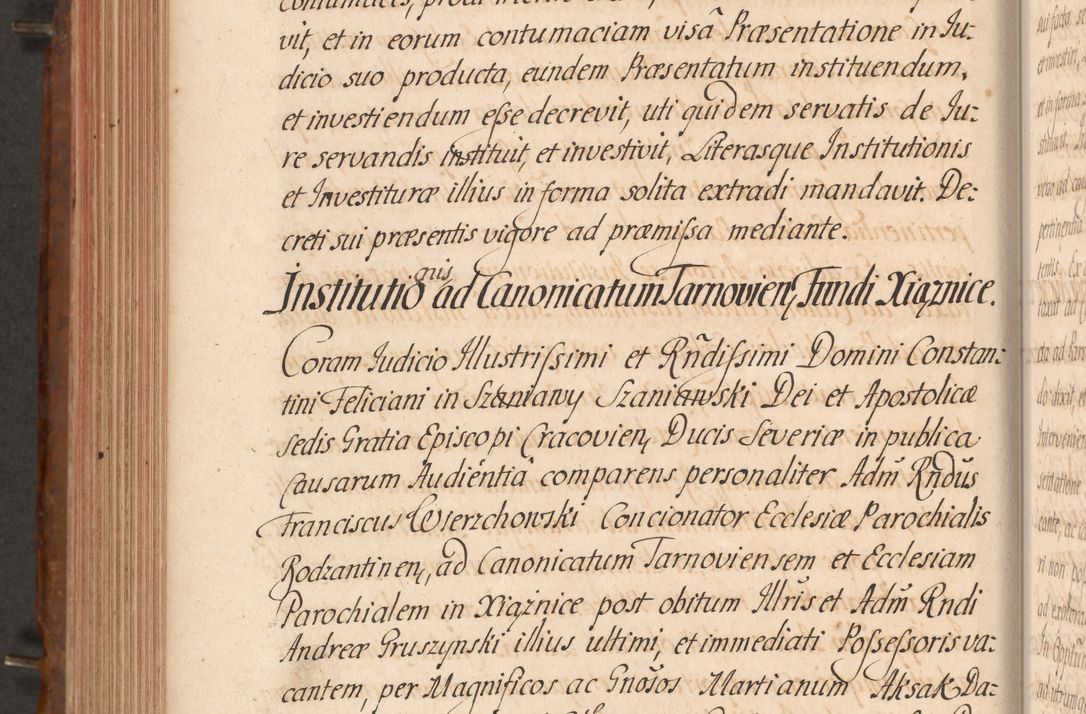 vit, et in eorum contumaciam visâ Præsentatione in Ju:
dicio suo producta, eundem Præsentatum instituendum,
et investiendum eſse decrevit, uti quidem servatis de Ju:
re servandis instituit, et investivit, Literasque Institutionis
et Investituræ illius in forma solita extradi mandavit. De:
creti sui præsentis vigore ad præmiſsa mediante.
Institutio nis ad Canonicatum Tarnovien, Fundi Xiąznice.
Coram Judicio Illustriſsimi et Rñdiſsimi Domini Constan:
tini Feliciani in Szaniawy Szaniawski Dei et Apostolicæ
Sedis Gratia Episcopi Cracovien, Ducis Severiæ in publica
Causarum Audientiâ comparens personaliter Adm̃ Rñdus
Franciscus Wierzchowski Concionator Ecclesiæ Parochialis
Rodzantinen, ad Canonicatum Tarnoviensem et Ecclesiam
Parochialem in Xiążnice post obitum Illris et Adm̃ Rndi
Andreæ Gruszynski illius ultimi, et immediati Poſseſsoris va:
cantem, per Magnificos ac Gnosos Martianum Aksak Da: